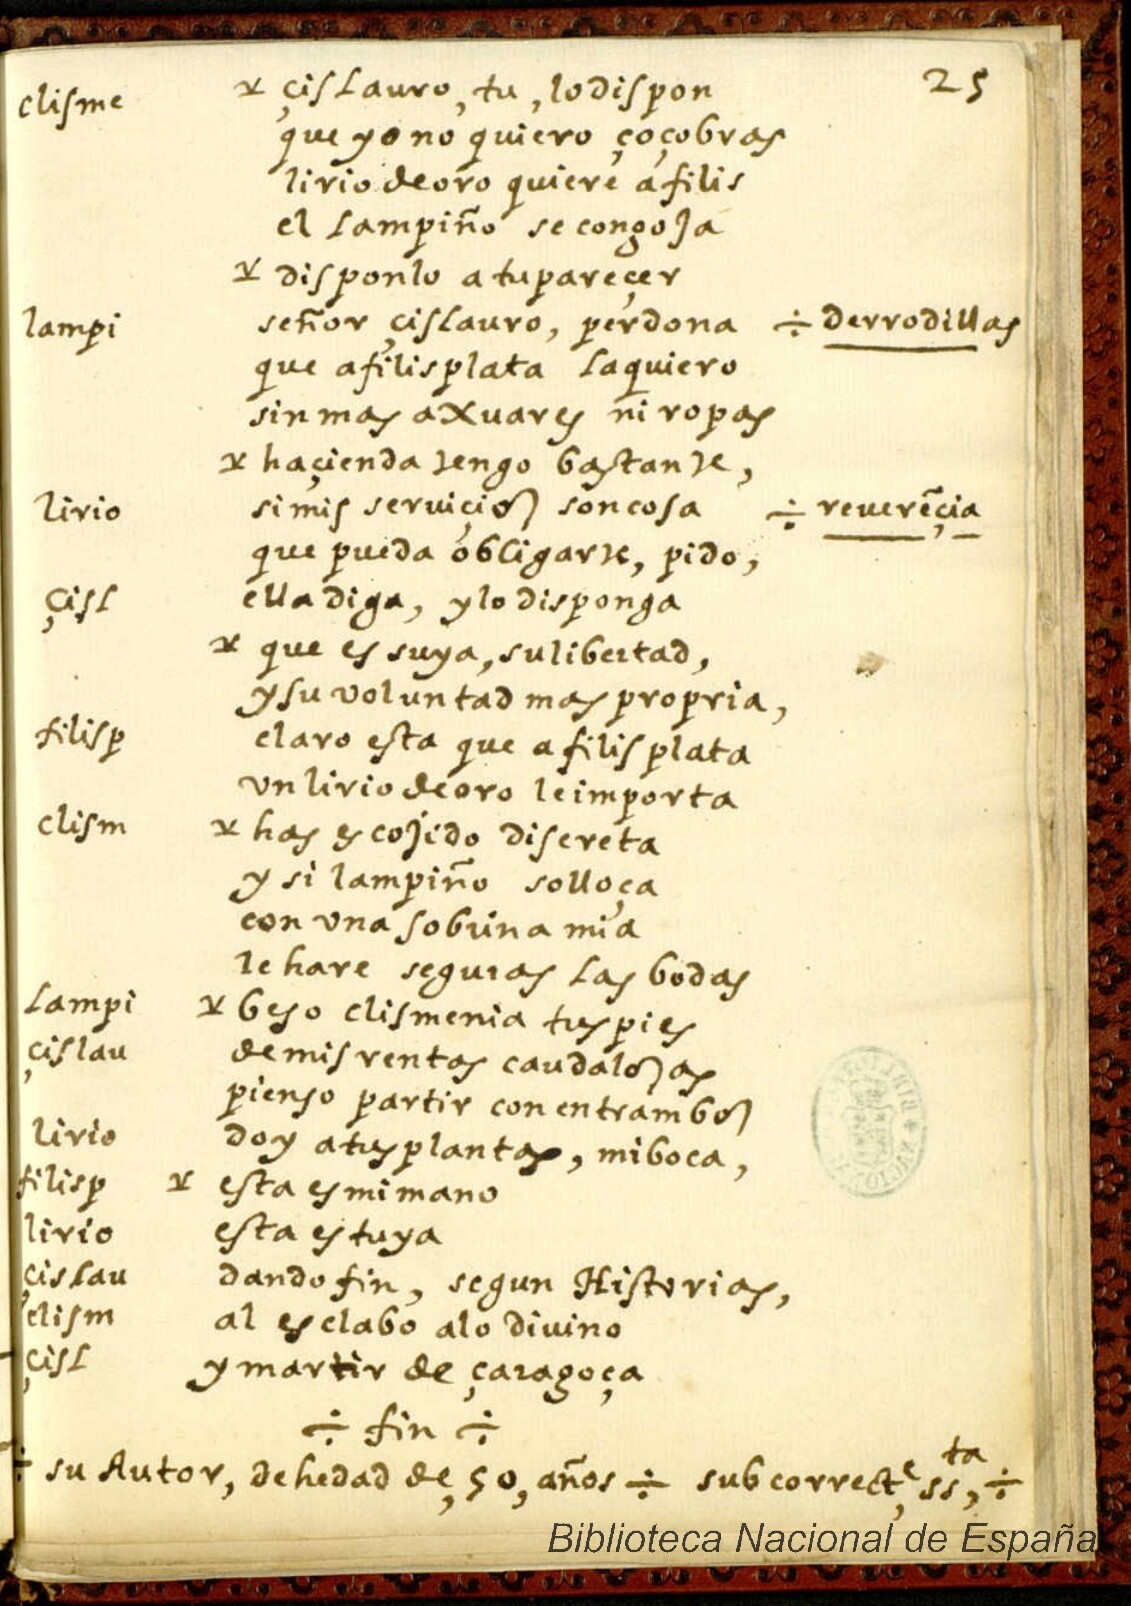 25
clisme ɤ çislauro, tu, lo dispon
que yo no quiero çoçobras
lirio de oro quiere a filis
el lampiño se congoja
ɤ disponlo a tu pareçer
lampi señor çislauro, perdona ÷ derrodillas
que a filis plata la quiero
sin mas axuares ni ropas
ɤ haçienda tengo bastante,
lirio si mis serviçios son cosa ÷ reuerẽçia
que pueda obligarte, pido,
çisl ella diga, y lo disponga
ɤ que es suya, su libertad,
y su voluntad mas propria,
filisp claro esta que a filis plata
vn lirio de oro le importa
clism ɤ has escojido discreta
y si lampiño solloça
con vna sobrina mia
le hare seguras las bodas
lampi ɤ beso clismenia tus pies
çislau de mis rentas caudalosas
pienso partir con entrambos
lirio doy a tus plantas, mi boca,
filisp ɤ esta es mi mano
lirio esta es tuya
çislau dando fin, segun Historias,
clism al esclabo a lo diuino
çisl y martir de çaragoça
÷ fin ÷
÷ su Autor, de hedad de, 50, años ÷ sub correct,e ss,ta ÷
Biblioteca Nacional de España